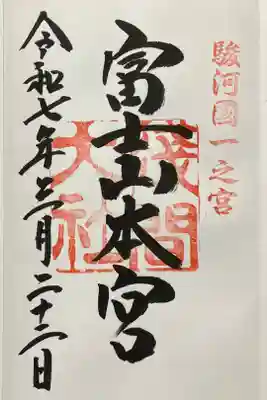 駿河國一之宮
富士山本宮
浅間
大社
令和七年十二月二十二日